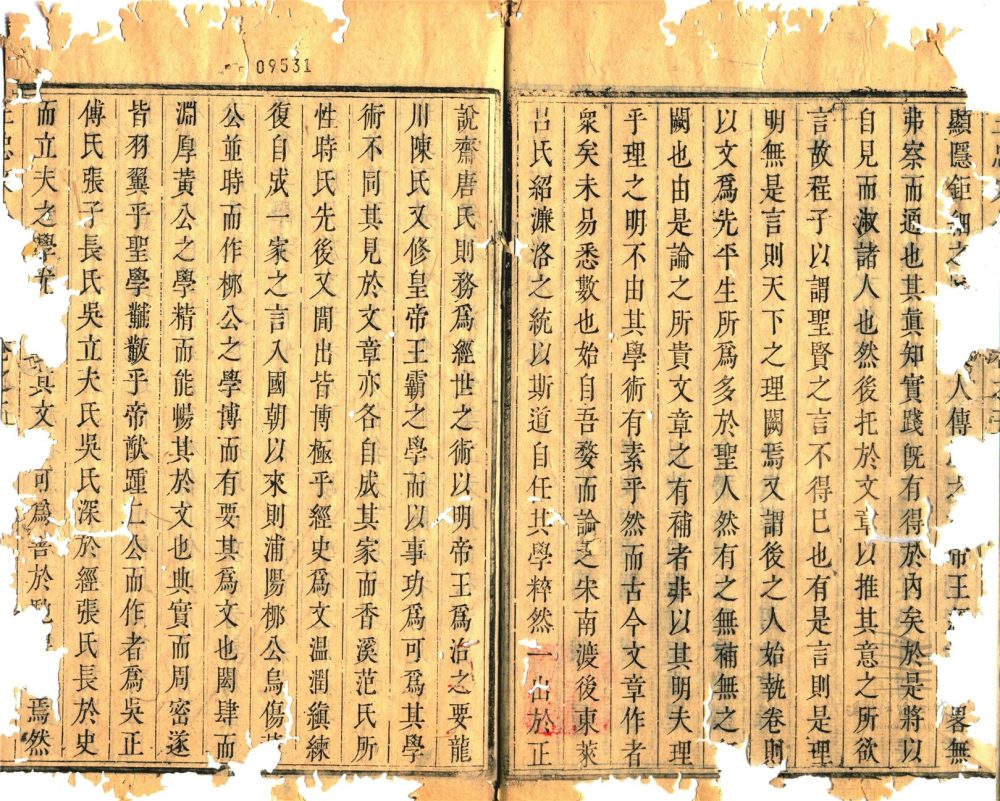 09531
顯隱鉅細之人傳之帝王畧無
弗察而通也其眞知實踐旣有得於內矣於是將以
自見而淑諸人也然後托於文章以推其意之所欲
言故程子以謂聖賢之言不得已也有是言則是理
明無是言則天下之理闕焉又謂後之人始執卷則
以文爲先平生所爲多於聖人然有之無補無之
闕也由是論之所貴文章之有補者非以其明夫理
乎理之明不由其學術有素乎然而古今文章作者
衆矣未易悉數也始自吾婺而論之宋南渡後東萊
呂氏紹濂洛之統以斯道自任其學粹然一出於正
說齋唐氏則務爲經世之術以明帝王爲治之要龍
川陳氏又修皇帝王霸之學而以事功爲可爲其學
術不同其見於文章亦各自成其家而香溪范氏所
性時氏先後又間出皆博極乎經史爲文温潤縝練
復自成一家之言入國朝以來則浦陽柳公烏傷
公並時而作柳公之學博而有要其爲文也閎肆而
淵厚黃公之學精而能暢其於文也典實而周密遂
皆羽翼乎聖學黼黻乎帝猷踵二公而作者爲吳正
傅氏張子長氏吳立夫氏吳氏深於經張氏長於史
而立夫之學尤其文可爲善於焉然